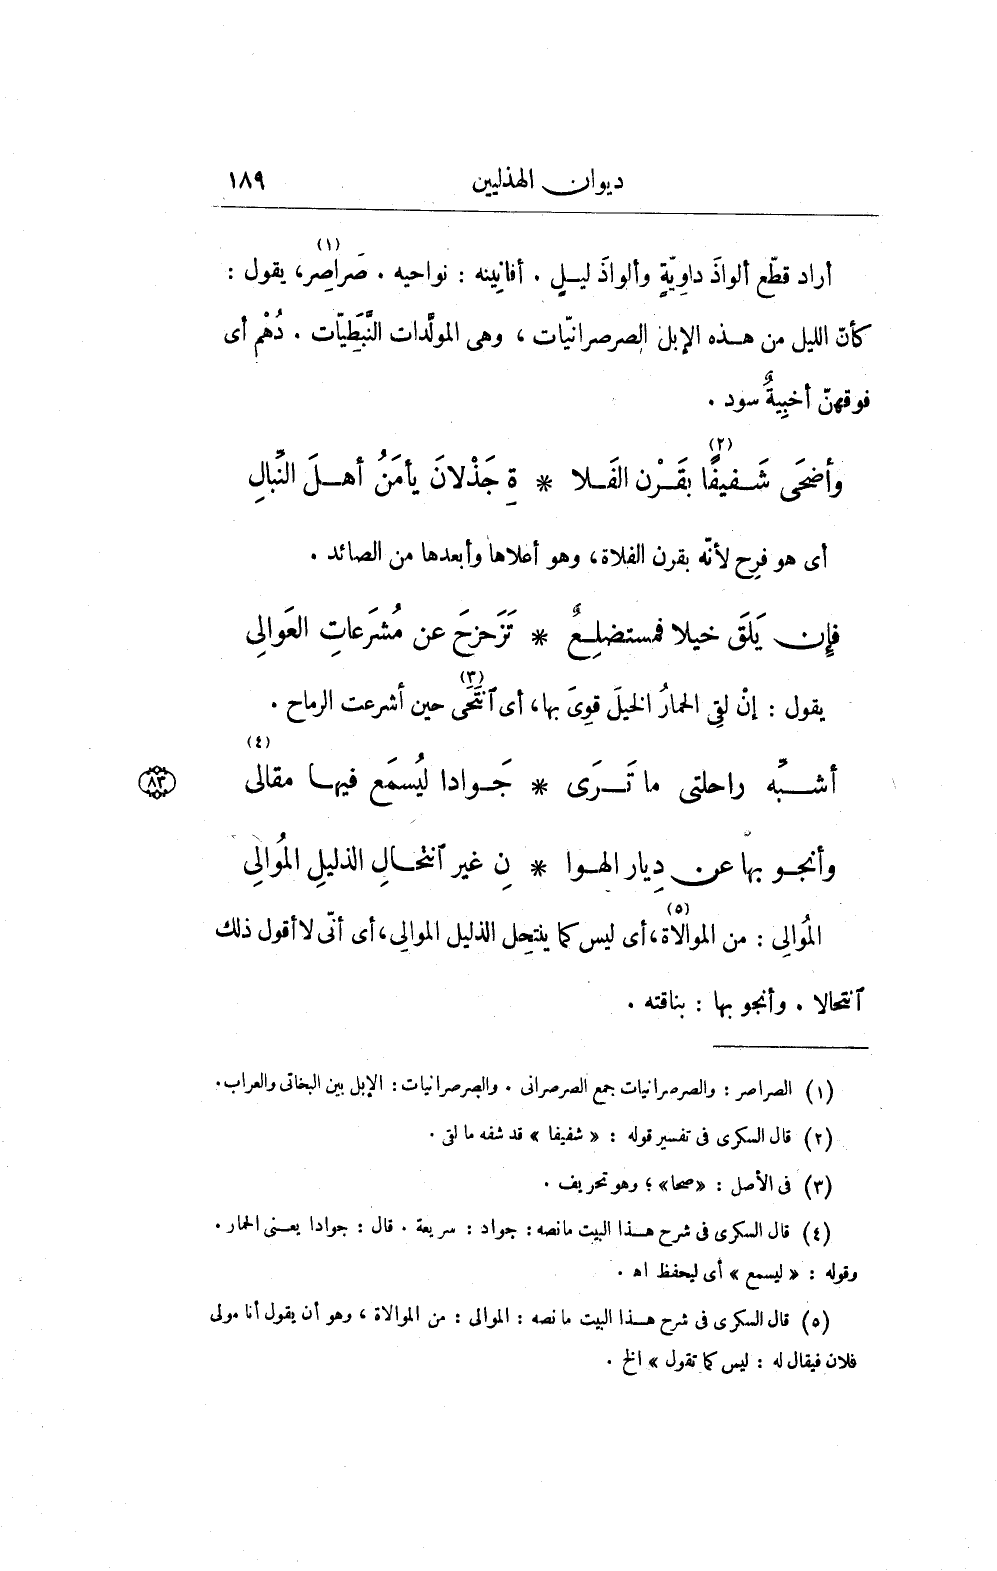 ديوان الهذليين ١٨٩
أراد قطّع ألواذَ داوِيّةٍ وألواذَ ليـلٍ . أفانِينه : نواحيه . صَراصِر(١)، يقول :
كأنّ الليل من هـذه الإبل الصرصرانيّات ، وهى المولَّدات النَّبَطِيّات . دُهْم أى
فوقهنّ أخبِيةٌ سود .
وأضحَى شَـفيفًا(٢) بقَـرْن الفَـلا * ةِ جَذْلانَ يأمَنُ أهـلَ النِّبالِ
أى هو فرِح لأنّه بقرن الفلاة، وهو أعلاها وأبعدها من الصائد .
فإن يَلقَ خيلا فمستضلِـعٌ * تَزَحزحَ عن مُشرَعاتِ العَوالِى
يقول : إنْ لقِى الحمارُ الخيلَ قوِىَ بها، أى ٱنتَحَى(٣) حين أشرعت الرماح .
أشـبِّه راحلتى ما تَـرَى * جَـوادا ليُسمَع فيهـا مقالى(٤)
٨٣
وأنجـو بها عن دِيار الهـوا * نِ غير ٱنتحـالِ الذليلِ المُوالِى
المُوالِى : من الموالاة(٥)، أى ليس كما ينتحِل الذليل الموالِى، أى أنّى لا أقول ذلك
ٱنتحالا . وأنجو بها : بناقته .
(١) الصراصر : والصرصرانيات جمع الصرصرانى . والصرصرانيات : الإبل بين البخاتى والعراب.
(٢) قال السكرى فى تفسير قوله : « شفيفا » قد شفه ما لقى .
(٣) فى الأصل : «صحا» ؛ وهو تحريف .
(٤) قال السكرى فى شرح هـذا البيت ما نصه : جواد : سريعة . قال : جوادا يعـنى الحمار .
وقوله : « ليسمع » أى ليحفظ اه .
(٥) قال السكرى فى شرح هـذا البيت ما نصه : الموالى : من الموالاة ، وهو أن يقول أنا مولى
فلان فيقال له : ليس كما تقول » الخ .